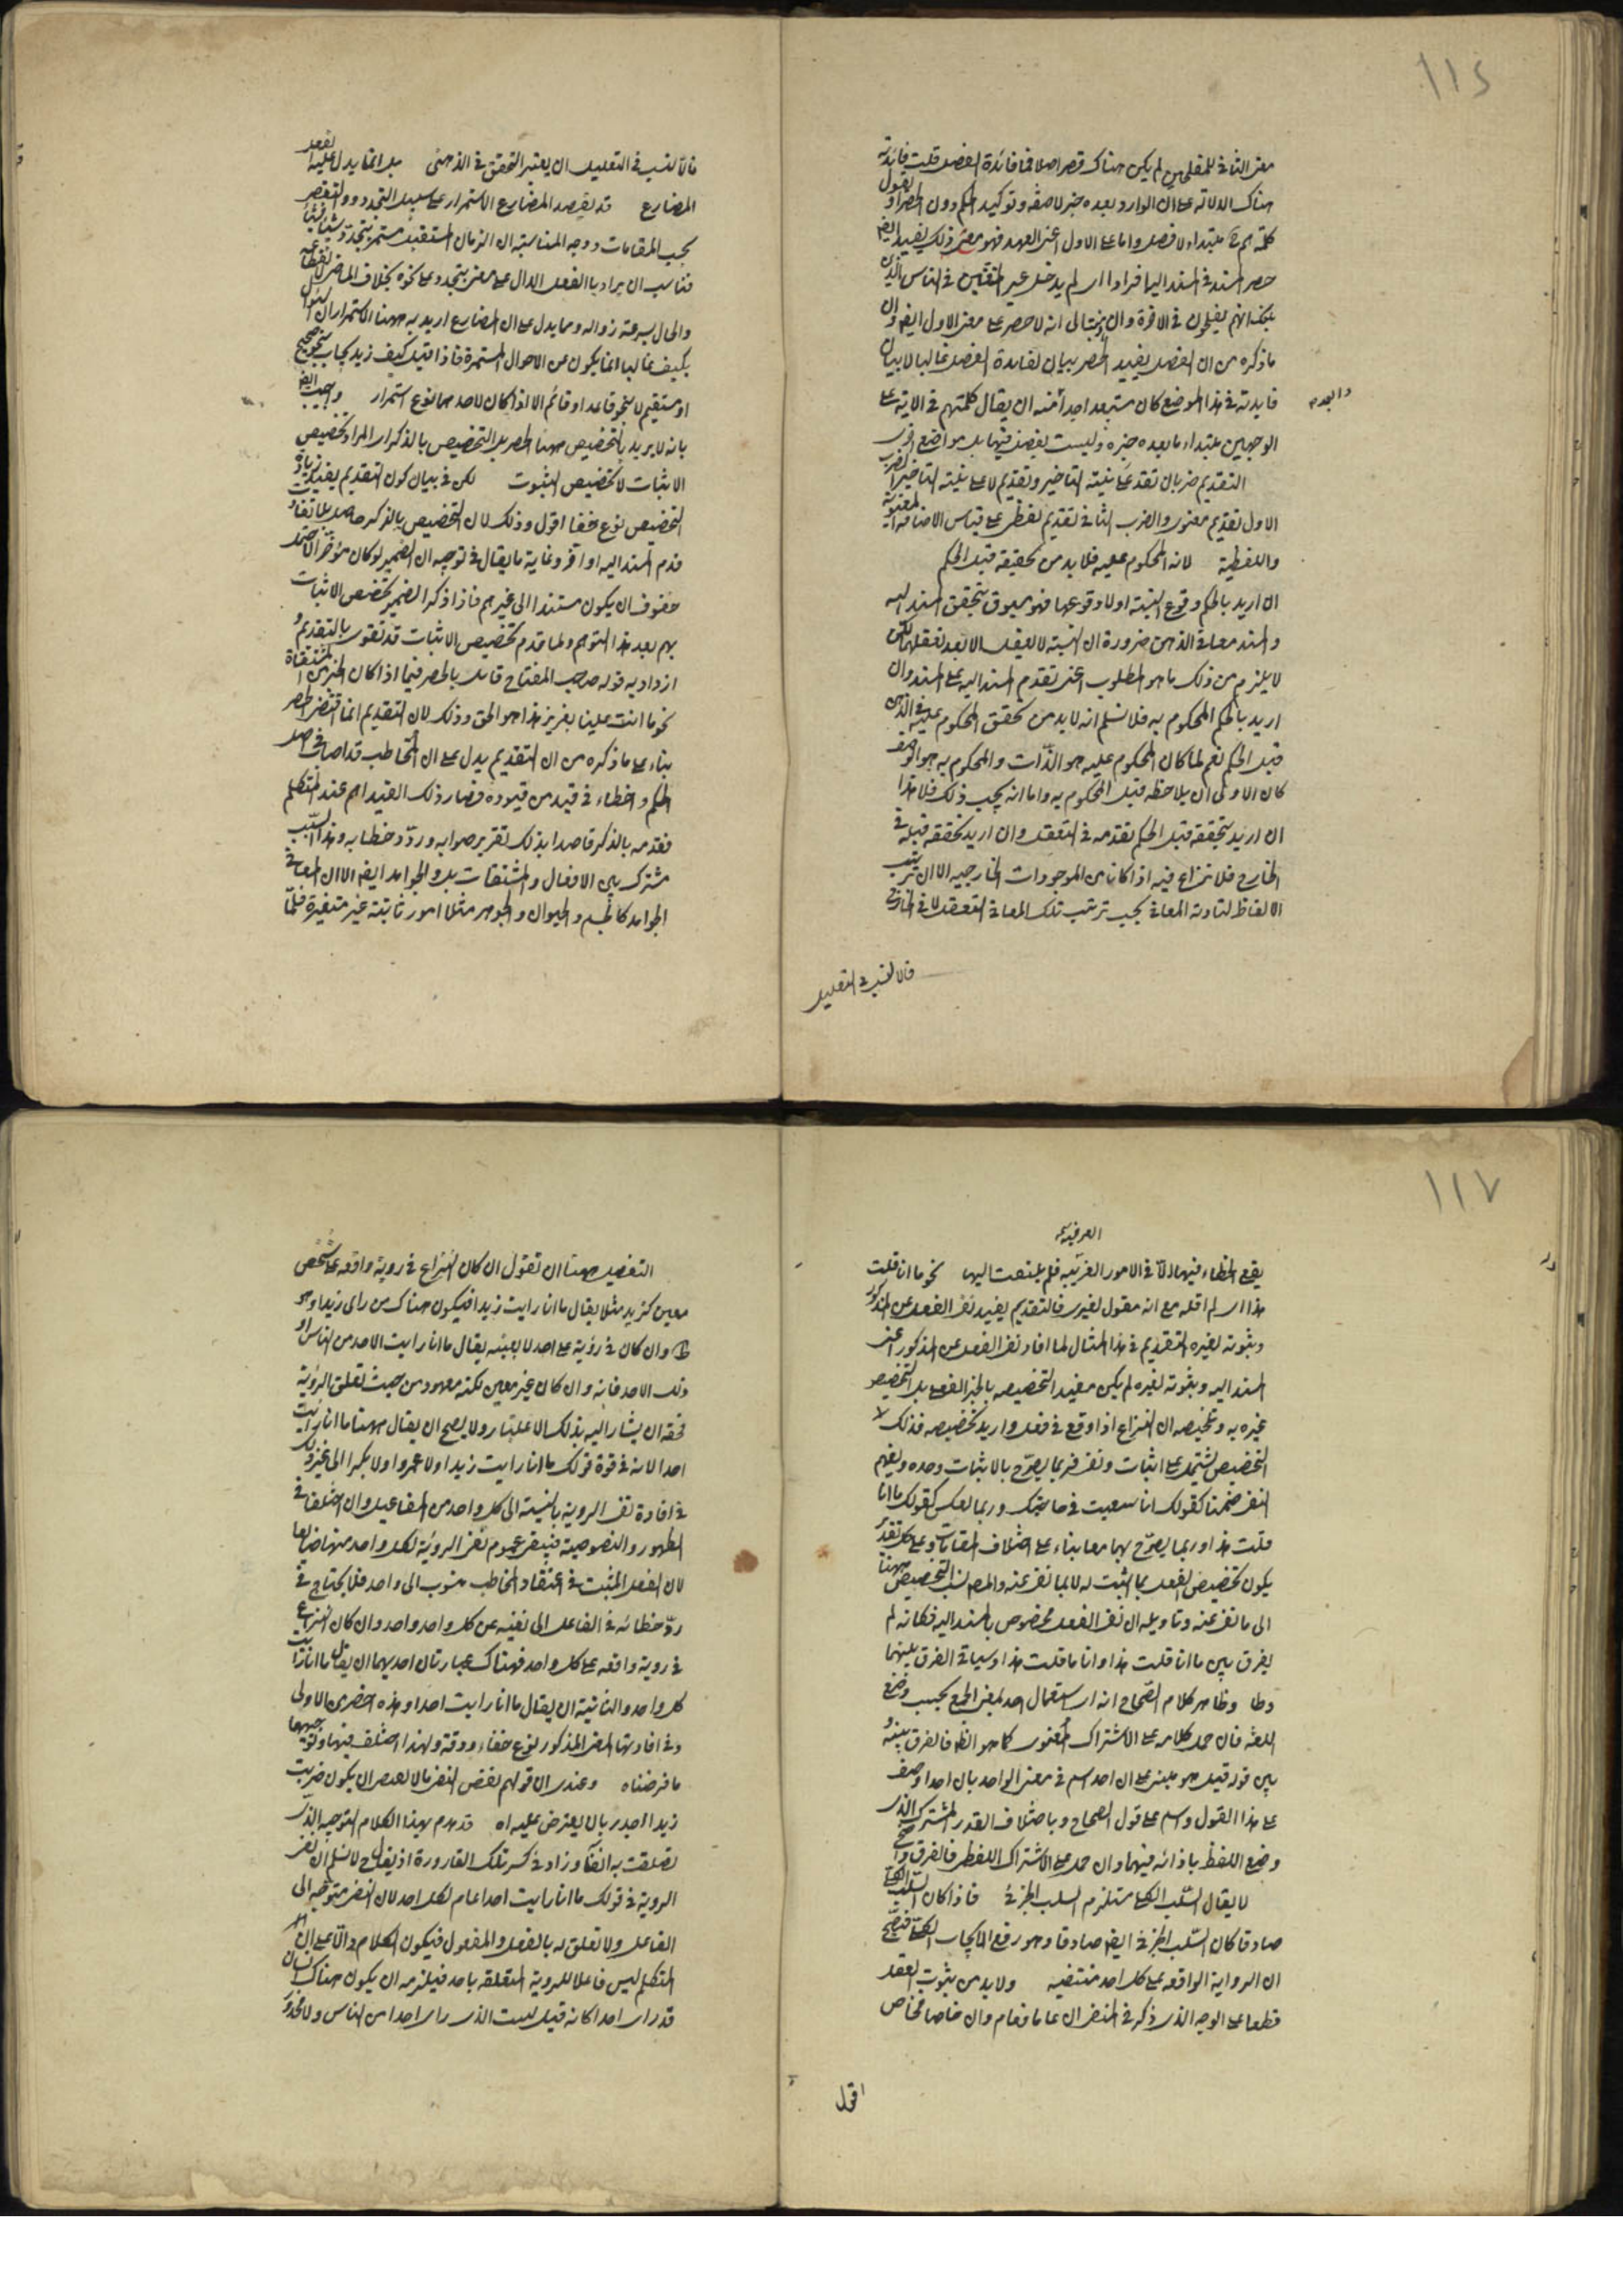 ١١٤
معنى الثانى للمفلحين لم يكن هناك قصر اصلا فما فائدة الفصل قلت فائدته
هناك الدلالة على ان الوارد بعده خبر لا صفة وتوكيد الحكم دون الحصر او نقول
كلمة هم مبتداء لا فصل واما على الاول اعنى العهد فهو معنى ذلك يفيد ايضا
حصر المسند فى المسند اليه افرادا اى لم يدخل غير المتقين فى الناس الذين
بلغك انهم يفلحون فى الاخرة وان الى انه لا حصر على معنى الاول ايضا وان
ما ذكره من ان الفصل يفيد الحصر بيان لفايدة الفصل غالبا لا بيان
فايدته فى هذا الموضع كان مستبعدا جدا منه ان يقال كلمة هم فى الاية على
الوجهين مبتداء ما بعده خبره وليست بفصل فيها بل مواضع اخرى
التقديم ضربان تقديم على نية التاخير وتقديم لا على نية التاخير الضرب
الاول تقديم معنوى والضرب الثانى تقديم لفظى على قياس الاضافة المعنوية
واللفظية لانه المحكوم عليه فلا بد من تحقيقه قبل الحكم
ان اريد بالحكم وقوع النسبة اولا وقوعها فهو مسبوق بتحقق المسند اليه
والمسند معا فى الذهن ضرورة ان النسبة لا تعقل الا بعد تعقلهما لكن
لا يلزم من ذلك ما هو المطلوب اعنى تقدم المسند اليه على المسند وان
اريد بالحكم المحكوم به فلا نسلم انه لا بد من تحقق المحكوم عليه فى الذهن
قبل الحكم نعم لما كان المحكوم عليه هو الذات والمحكوم به هو الوصف
كان الاولى ان يلاحظ قبل المحكوم به واما انه يجب ذلك فلا هذا
ان اريد بتحققه قبل الحكم تقدمه فى التعقل وان اريد تحققه قبله فى
الخارج فلا نزاع فيه اذا كانا من الموجودات الخارجية الا ان ترتيب
الالفاظ لتادية المعانى بحسب ترتيب تلك المعانى التعقل لا فى الخارج
فالانسب فى التعليل
فالانسب فى التعليل ان يعتبر التحقق فى الذهن بل انما يدل عليه الفعل
المضارع قد يقصد بالمضارع الاستمرار على سبيل التجدد والتقضى
بحسب المقامات ووجه المناسبة ان الزمان المستقبل مستمر يتجدد شيئا فشيئا
فناسب ان يراد بالفعل الدال على معنى يتجدد على نحوه بخلاف الماضى لانقطاعه
والحال لسرعة زواله ومما يدل على ان المضارع اريد به ههنا الاستمرار ان السؤال
بكيف غالبا انما يكون عن الاحوال المستمرة فاذا قيل كيف زيد يجاب بنحو صحيح
او سقيم لا بنحو قاعد او قائم الا اذا كان لاحدهما نوع استمرار واجيب ايضا
بانه لا يريد بالتخصيص ههنا الحصر بل التخصيص بالذكر او المراد تخصيص
الاثبات لا تخصيص الثبوت لكن فى بيان كون التقديم يفيد زيادة
التخصيص نوع خفا اقول وذلك لان التخصيص بالذكر حاصل بلا تفاوت
قدم المسند اليه او اخر وغاية ما يقال فى توجيهه ان الضمير لو كان مؤخرا لاحتمل
خفوف ان يكون مستندا الى غيرهم فاذا ذكر الضمير تخصص الاثبات
بهم بعد هذا التوهم ولما قدم تخصيص الاثبات قد تقوى بالتقديم و
ازداد به قوله صاحب المفتاح قائل بالحصر فيما اذا كان الخبر من المشتقات
نحو ما انت علينا بعزيز هذا هو الحق وذلك لان التقديم انما اقتضى الحصر
بناء على ما ذكره من ان التقديم يدل على ان المخاطب قد اصاب فى اصل
الحكم واخطاء فى قيد من قيوده فصار ذلك القيد اهم عند المتكلم
فقدمه بالذكر قاصدا بذلك تقرير صوابه ورد خطابه وهذا السبب
مشترك بين الافعال والمشتقات بل والجوامد ايضا الا ان المعانى
الجوامد كالجسم والحيوان والجوهر مثلا امور ثابتة غير متغيرة قلما
١١٧
العرفية
يقع الخطاء فيها الا فى الامور الغريبة فلم يلتفت اليها نحو ما انا قلت
هذا اى لم اقله مع انه مقول لغيرى فالتقديم يفيد نفى الفعل عن المذكور
وثبوته لغيره التقديم فى هذا المثال لما افاد نفى الفعل عن المذكور اعنى
المسند اليه وثبوته لغيره لم يكن مفيد التخصيصه بالخبر الفعلى بل التخصيص
غيره به وتلخيصه ان النزاع اذا وقع فى فعل واريد تخصيصه فذلك
التخصيص يشتمل على اثبات ونفى فربما يصرح بالاثبات وحده ويفهم
النفى ضمنا كقولك انا سعيت فى حاجتك وربما يعكس كقولك ما انا
قلت هذا وربما يصرح بهما معا بناء على اختلاف المقامات وعلى كل تقدير
يكون تخصيص الفعل بما اثبت له لا بما نفى عنه والمص نسب التخصيص ههنا
الى ما نفى عنه وتاويله ان نفى الفعل مخصوص بالمسند اليه فكانه لم
يفرق بين ما انا قلت هذا وانا ما قلت هذا وسياتى الفرق بينهما
وظاهر كلام الصحاح انه استعمال احد بمعنى الجمع بحسب وضع
اللغة فان حمل كلامه على الاشتراك المعنوى كما هو الظ فالفرق بينه و
بين قول قيل هو مبنى على ان احد اسم فى معنى الواحد بان احدا وصف
على هذا القول واسم على قول الصحاح وباختلاف القدر المشترك الذى
وضع اللفظ بازائه فيهما وان حمل على الاشتراك اللفظى فالفرق واضح
لا يقال السلب الكلى مستلزم السلب الجزئى فاذا كان السلب الكلى
صادقا كان السلب الجزئى ايضا صادقا وهو رفع الايجاب الكلى فيصح
ان الرواية الواقعة على كل احد منتفية ولا بد من ثبوت الفعل
قطعا على الوجه الذى ذكر فى المنفى ان عاما فعام وان خاصا فخاص
اقول
التفصيل ههنا ان نقول ان كان النزاع فى روية واقعة على شخص
معين كزيد مثلا يقال ما انا رايت زيدا فيكون هناك من راى زيدا وهو
ظ وان كان فى روية على احد لا بعينه يقال ما انا رايت الاحد من الناس او
ذلك الاحد فانه وان كان غير معين لكنه معهود من حيث تعلق الروية
فحقه ان يشار اليه بذلك الاعتبار ولا يصح ان يقال ههنا ما انا رايت
احدا لانه فى قوة قولك ما انا رايت زيدا ولا عمروا ولا بكرا الى غير ذلك
فى افادة نفى الروية بالنسبة الى كل واحد من المفاعيل وان اختلفا فى
الظهور والنصوصية فينتفى عموم نفى الروية لكل واحد منهم ايضا
لان الفعل المثبت فى اعتقاد المخاطب منسوب الى واحد فلا يحتاج فى
رد خطائه فى الفاعل الى نفيه عن كل واحد واحد وان كان النزاع
فى روية واقعة على كل واحد فهناك عبارتان احديهما ان يقال ما انا رايت
كل واحد والثانية ان يقال ما انا رايت احدا وهذه اخصر من الاولى
وفى افادتها المعنى المذكور نوع خفاء ودقة ولهذا اختلف فيها وتوجيهها
ما فرضناه وعندى ان قولهم نقض النفى بالا يقتضى ان يكون ضربت
زيدا اجدر بان يعترض عليه اه قد هدم بهذا الكلام التوجيه الذى
تصلفت به انفا وزاد فى كسر تلك القارورة اذ يقال ح لا نسلم ان نفى
الروية فى قولك ما انا رايت احدا عام لكل احد لان النفى متوجه الى
الفاعل ولا تعلق له بالفعل والمفعول فيكون الكلام دالا على ان
المتكلم ليس فاعلا للروية المتعلقة باحد فيلزمه ان يكون هناك انسان
قد راى احدا كانه قيل لست الذى راى احدا من الناس ولا محذور